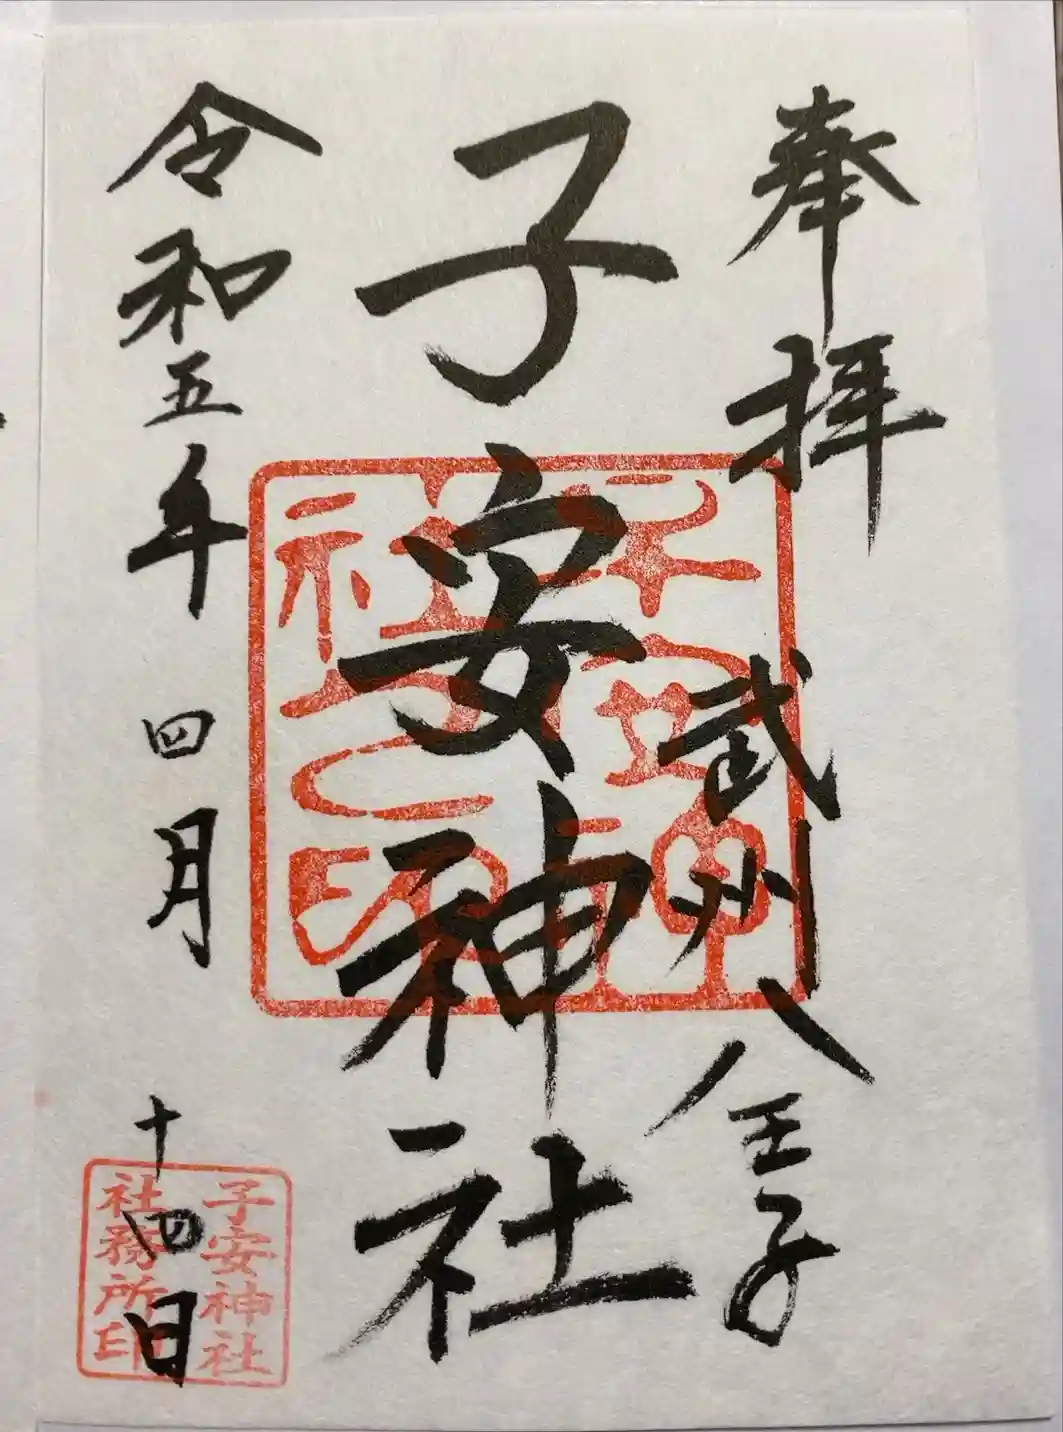 奉拝
武州八王子
子安神社
令和五年四月十四日
子安神
社之印
子安神社
社務所印